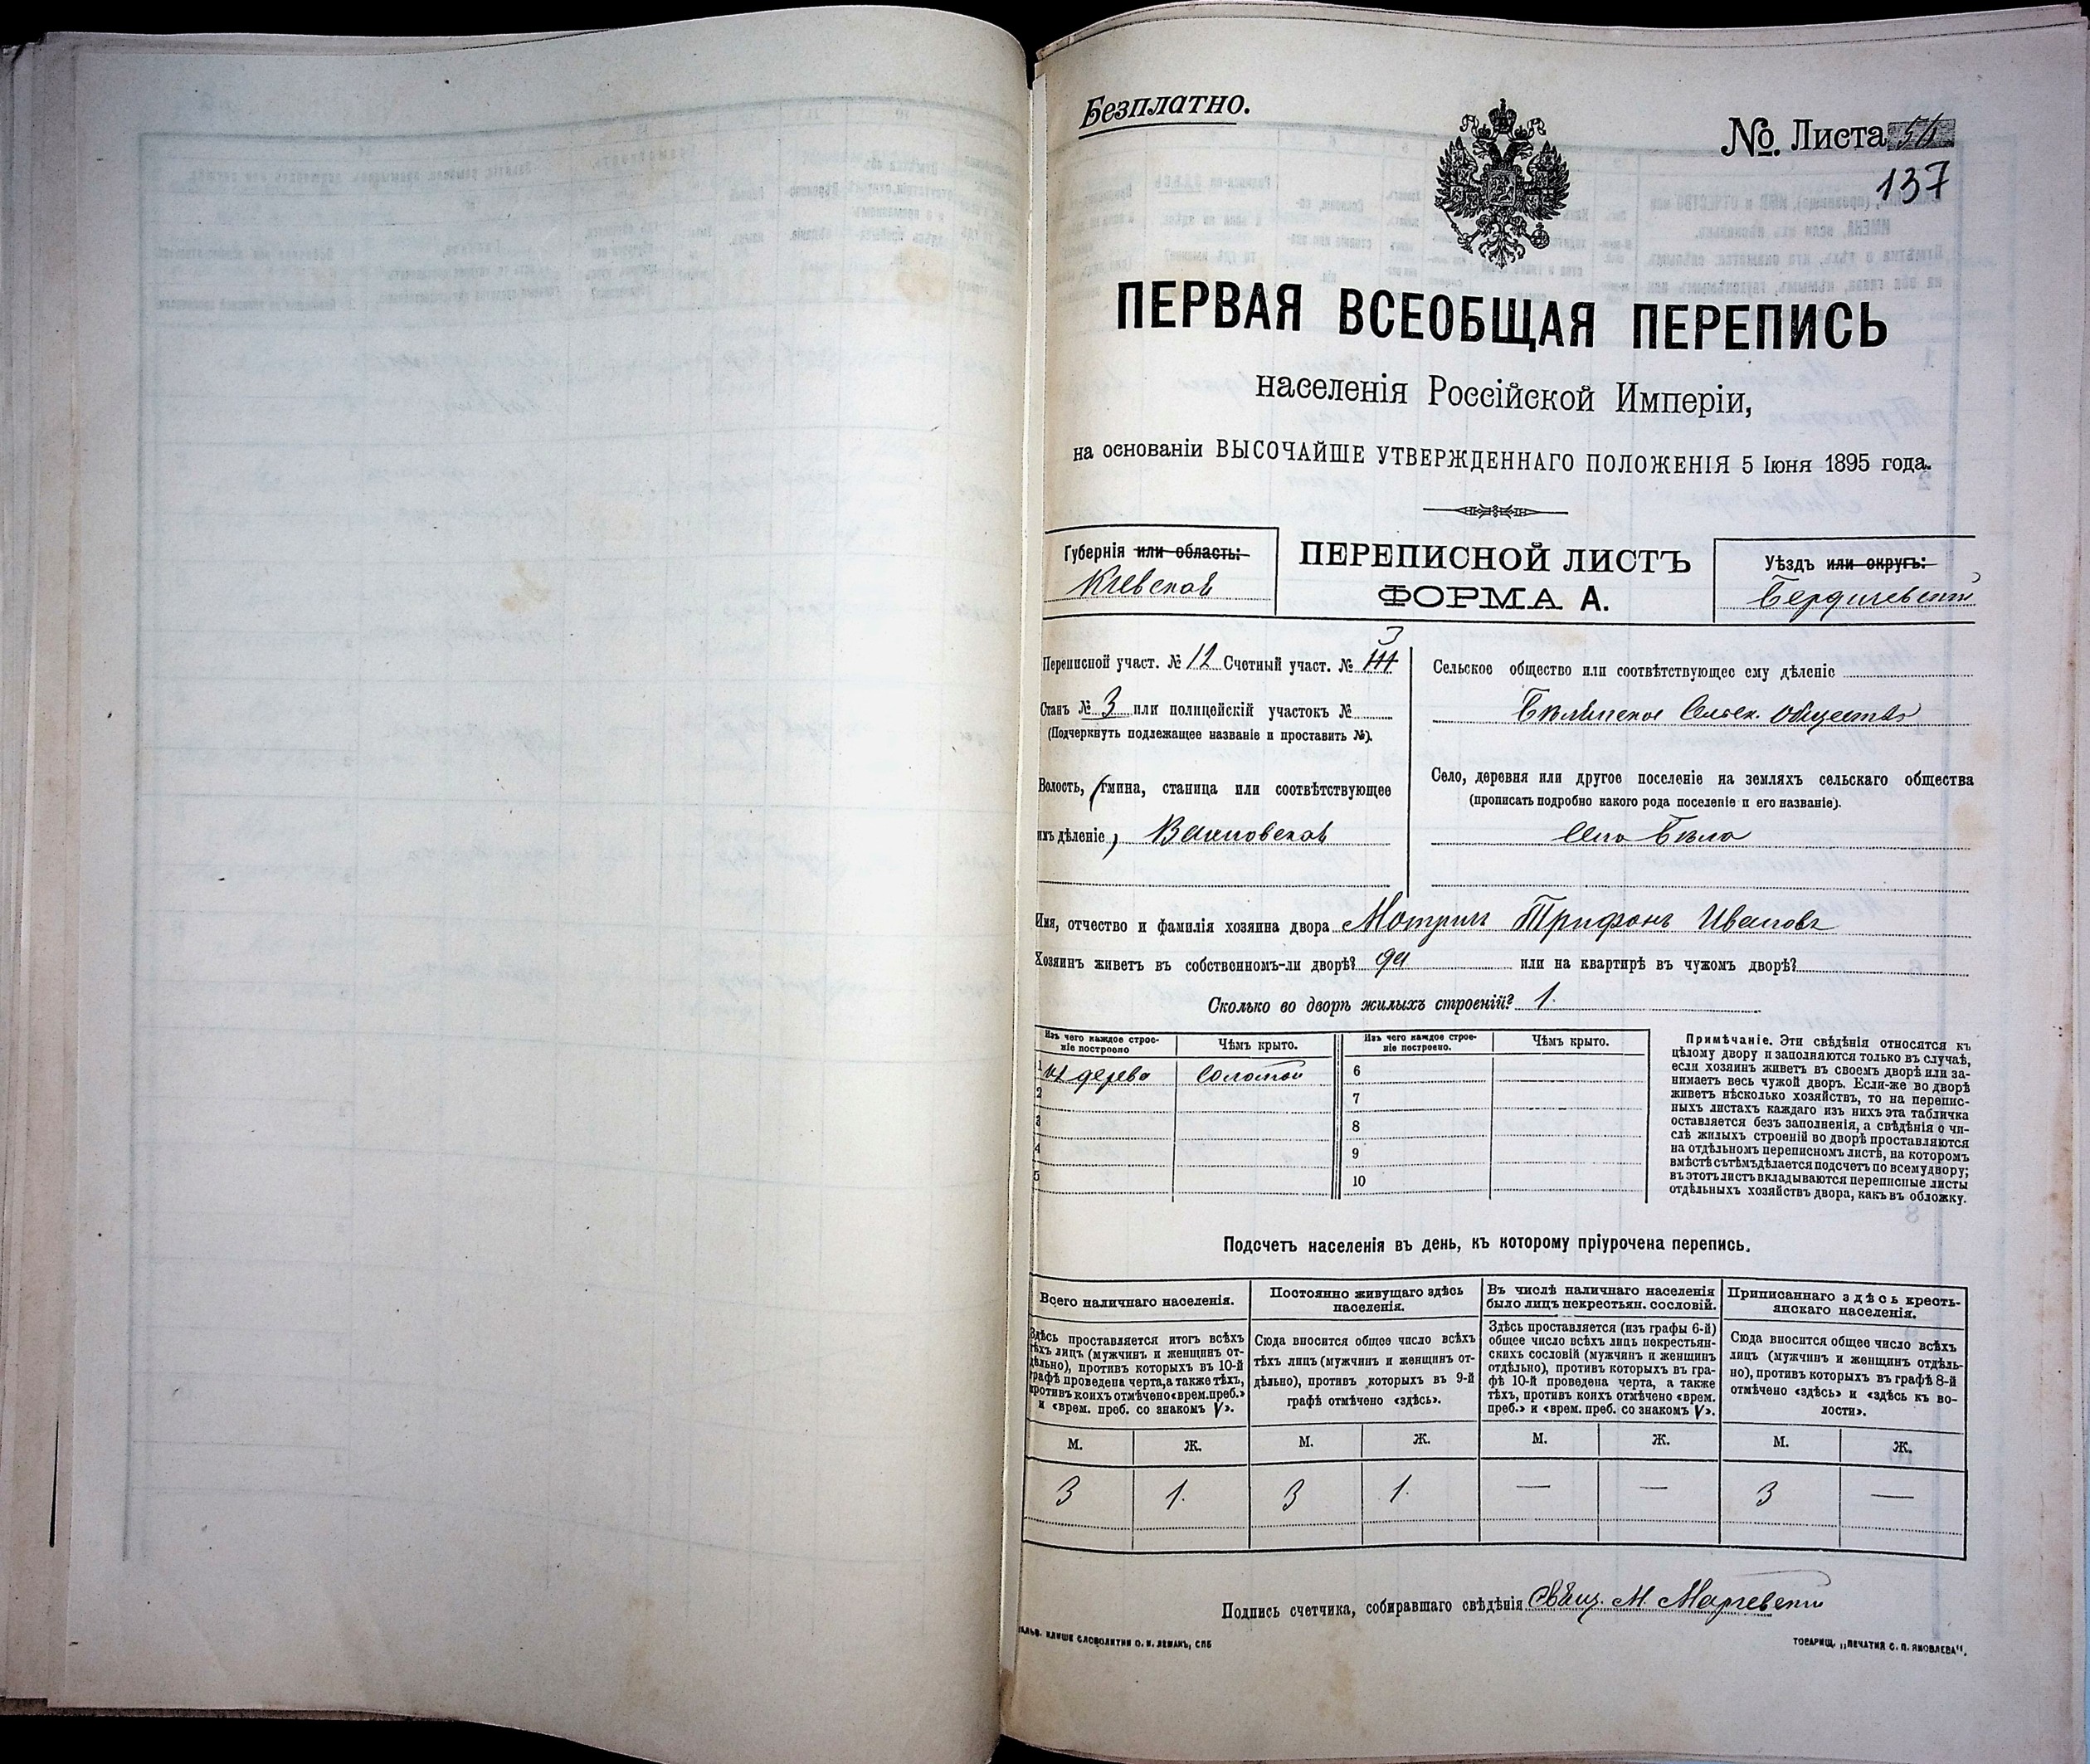 Безплатно.
№ Листа
137
ПЕРВАЯ ВСЕОБЩАЯ ПЕРЕПИСЬ
населенія Россійской Имперіи,
на основаніи ВЫСОЧАЙШЕ УТВЕРЖДЕННАГО ПОЛОЖЕНІЯ 5 Іюня 1895 года.
Губернія или область:
Кіевская
ПЕРЕПИСНОЙ ЛИСТЪ
ФОРМА А.
Уѣздъ или округъ:
Бердичевскій
Переписной участ. № 12 Счетный участ. № III 3
Станъ № 3 или полицейскій участокъ №
(Подчеркнуть подлежащее названіе и проставить №).
Волость, (гмина, станица или соотвѣтствующее
имъ дѣленіе)
Сельское общество или соотвѣтствующее ему дѣленіе
Сельск. общество
Село, деревня или другое поселеніе на земляхъ сельскаго общества
(прописать подробно какого рода поселеніе и его названіе).
Село
Имя, отчество и фамилія хозяина двора Трифонъ Ивановъ
Хозяинъ живетъ въ собственномъ-ли дворѣ? да или на квартирѣ въ чужомъ дворѣ?
Сколько во дворѣ жилыхъ строеній? 1.
Изъ чего каждое строе-
ніе построено
Чѣмъ крыто.
Изъ чего каждое строе-
ніе построено.
Чѣмъ крыто.
1 изъ дерева соломой 6
2 7
3 8
4 9
5 10
Примѣчаніе. Эти свѣдѣнія относятся къ
цѣлому двору и заполняются только въ случаѣ,
если хозяинъ живетъ въ своемъ дворѣ или за-
нимаетъ весь чужой дворъ. Если-же во дворѣ
живетъ нѣсколько хозяйствъ, то на перепис-
ныхъ листахъ каждаго изъ нихъ эта табличка
оставляется безъ заполненія, а свѣдѣнія о чи-
слѣ жилыхъ строеній во дворѣ проставляются
на отдѣльномъ переписномъ листѣ, на которомъ
вмѣстѣ съ тѣмъ дѣлается подсчетъ по всему двору;
въ этотъ листъ вкладываются переписные листы
отдѣльныхъ хозяйствъ двора, какъ въ обложку.
Подсчетъ населенія въ день, къ которому пріурочена перепись.
Всего наличнаго населенія.
Здѣсь проставляется итогъ всѣхъ
тѣхъ лицъ (мужчинъ и женщинъ от-
дѣльно), противъ которыхъ въ 10-й
графѣ проведена черта, а также тѣхъ,
противъ коихъ отмѣчено «врем. преб.»
и «врем. преб. со знакомъ V».
Постоянно живущаго здѣсь
населенія.
Сюда вносится общее число всѣхъ
тѣхъ лицъ (мужчинъ и женщинъ от-
дѣльно), противъ которыхъ въ 9-й
графѣ отмѣчено «здѣсь».
Въ числѣ наличнаго населенія
было лицъ некрестьян. сословій.
Здѣсь проставляется (изъ графы 6-й)
общее число всѣхъ лицъ некрестьян-
скихъ сословій (мужчинъ и женщинъ
отдѣльно), противъ которыхъ въ гра-
фѣ 10-й проведена черта, а также
тѣхъ, противъ коихъ отмѣчено «врем.
преб.» и «врем. преб. со знакомъ V».
Приписаннаго здѣсь кресть-
янскаго населенія.
Сюда вносится общее число всѣхъ
лицъ (мужчинъ и женщинъ отдѣль-
но), противъ которыхъ въ графѣ 8-й
отмѣчено «здѣсь» и «здѣсь къ во-
лости».
М. Ж. М. Ж. М. Ж. М. Ж.
3 1. 3 1. — — 3 —
Подпись счетчика, собиравшаго свѣдѣнія Свящ. М.
ТОВАРИЩ. „ПЕЧАТНЯ С. П. ЯКОВЛЕВА“.